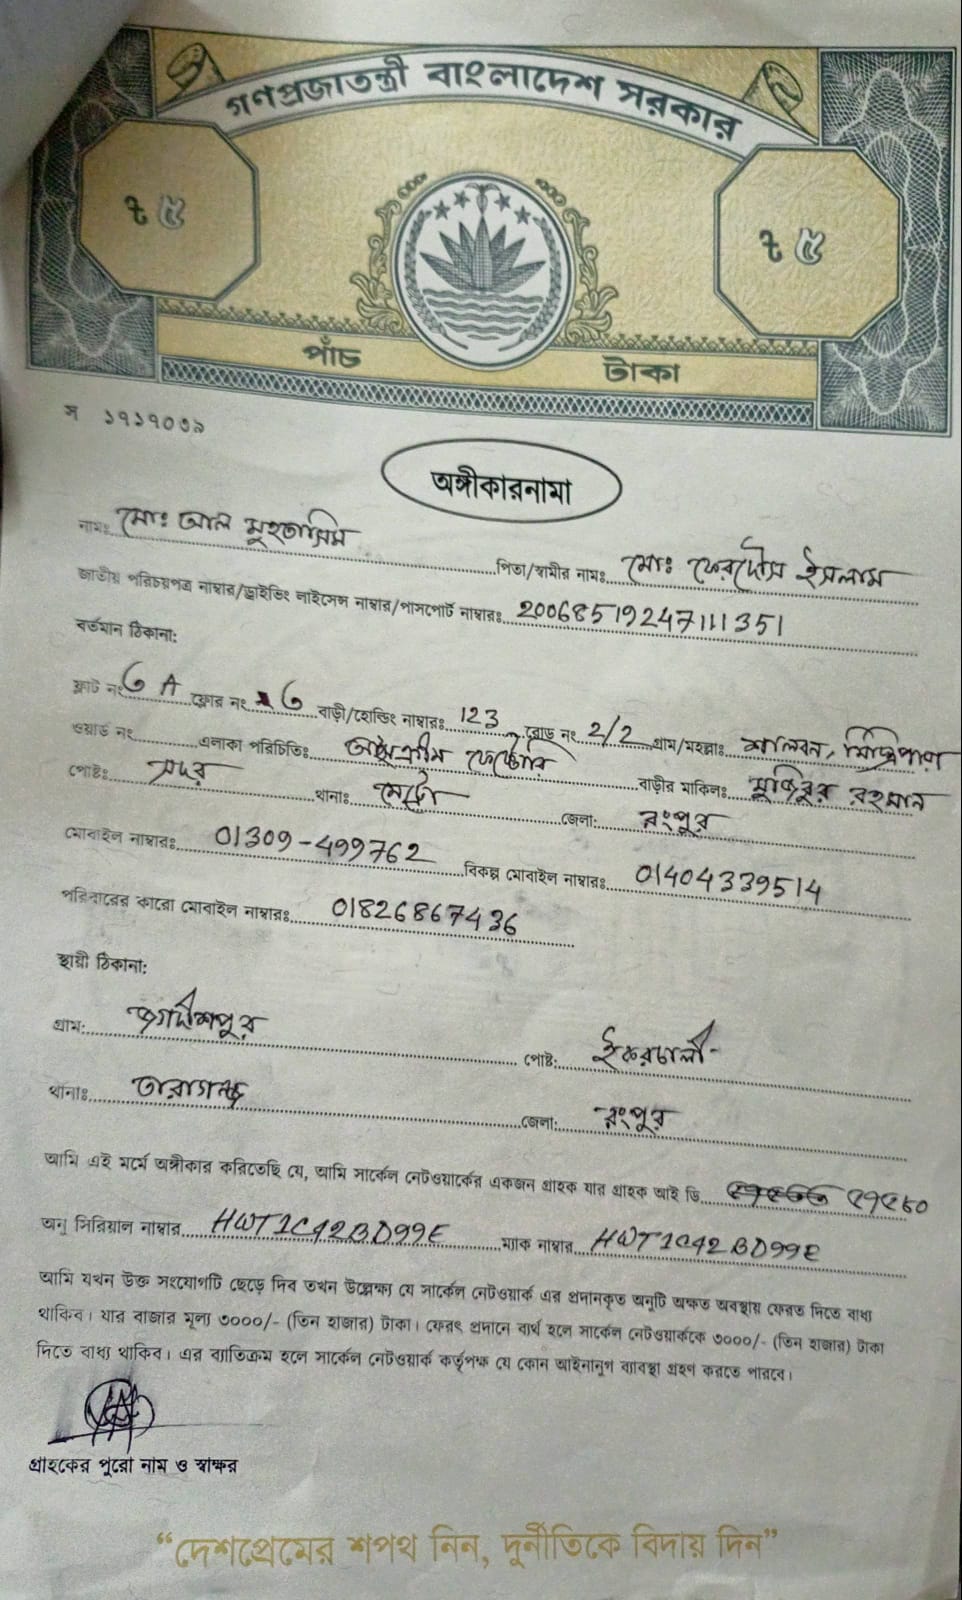 গণপ্রজাতন্ত্রী বাংলাদেশ সরকার
৳ ৫
৳ ৫
পাঁচ টাকা
স ১৭১৭০৩৯
অঙ্গীকারনামা
নামঃ মোঃ আল মুহতাসিম পিতা/স্বামীর নামঃ মোঃ ফেরদৌস ইসলাম
জাতীয় পরিচয়পত্র নাম্বার/ড্রাইভিং লাইসেন্স নাম্বার/পাসপোর্ট নাম্বারঃ 20068519247111351
বর্তমান ঠিকানা:
ফ্লাট নং 6 A ফ্লোর নং 6 বাড়ী/হোল্ডিং নাম্বারঃ 123 রোড নং 2/2 গ্রাম/মহল্লাঃ শালবন, মিস্ত্রিপাড়া
ওয়ার্ড নং এলাকা পরিচিতিঃ আইসক্রীম ফেক্টোরি বাড়ীর মালিকঃ মুজিবুর রহমান
পোষ্টঃ সদর থানাঃ মেট্রো জেলা: রংপুর
মোবাইল নাম্বারঃ 01309-499762 বিকল্প মোবাইল নাম্বারঃ 01404339514
পরিবারের কারো মোবাইল নাম্বারঃ 01826867436
স্থায়ী ঠিকানা:
গ্রাম: জগদীশপুর পোষ্ট: ইকরচালী
থানাঃ তারাগঞ্জ জেলা: রংপুর
আমি এই মর্মে অঙ্গীকার করিতেছি যে, আমি সার্কেল নেটওয়ার্কের একজন গ্রাহক যার গ্রাহক আই ডি ৫৭৫৮০
অনু সিরিয়াল নাম্বার HWT1C42BD99E ম্যাক নাম্বার HWT1C42BD99E
আমি যখন উক্ত সংযোগটি ছেড়ে দিব তখন উল্লেক্ষ্য যে সার্কেল নেটওয়ার্ক এর প্রদানকৃত অনুটি অক্ষত অবস্থায় ফেরত দিতে বাধ্য
থাকিব। যার বাজার মূল্য ৩০০০/- (তিন হাজার) টাকা। ফেরৎ প্রদানে ব্যর্থ হলে সার্কেল নেটওয়ার্ককে ৩০০০/- (তিন হাজার) টাকা
দিতে বাধ্য থাকিব। এর ব্যাতিক্রম হলে সার্কেল নেটওয়ার্ক কর্তৃপক্ষ যে কোন আইনানুগ ব্যাবস্থা গ্রহণ করতে পারবে।
গ্রাহকের পুরো নাম ও স্বাক্ষর
“দেশপ্রেমের শপথ নিন, দুর্নীতিকে বিদায় দিন”